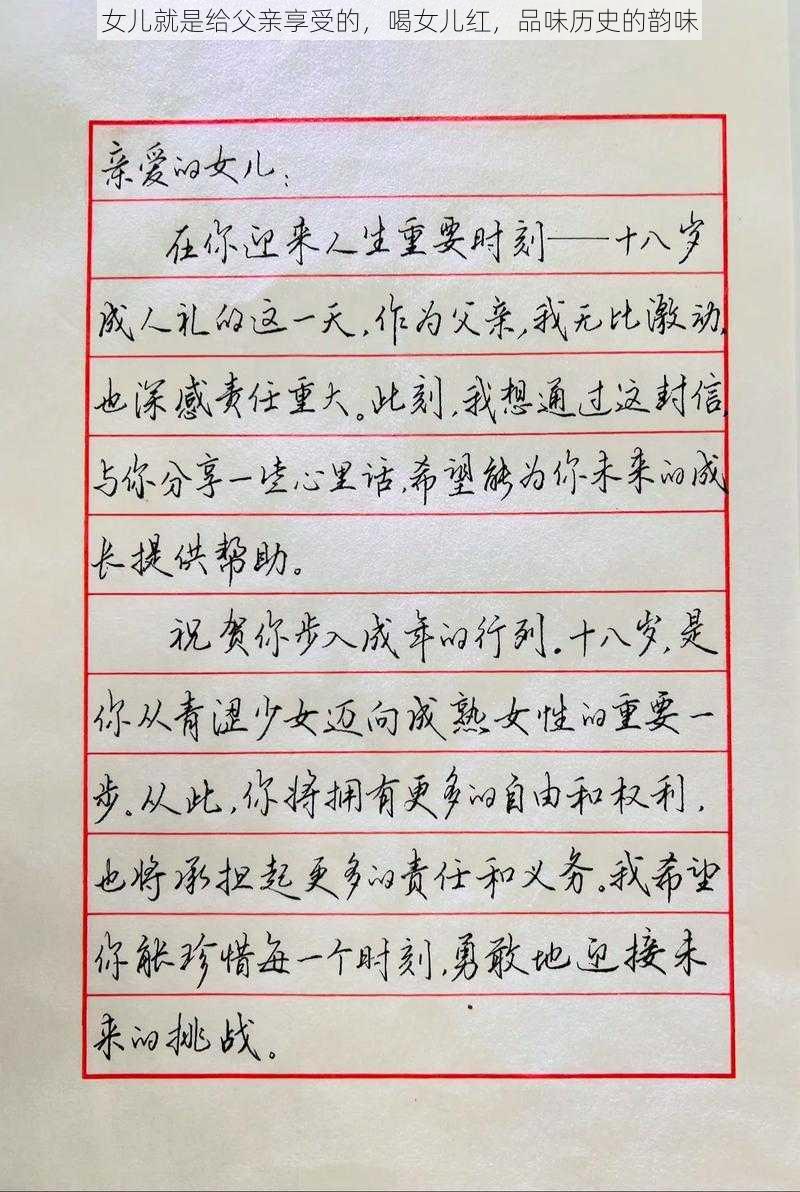 女儿就是给父亲享受的，喝女儿红，品味历史的韵味
亲爱的女儿：
在你迎来人生重要时刻——十八岁
成人礼的这一天，作为父亲，我无比激动，
也深感责任重大。此刻，我想通过这封信，
与你分享一些心里话，希望能为你未来的成
长提供帮助。
祝贺你步入成年的行列。十八岁，是
你从青涩少女迈向成熟女性的重要一
步。从此，你将拥有更多的自由和权利，
也将承担起更多的责任和义务。我希望
你能珍惜每一个时刻，勇敢地迎接未
来的挑战。